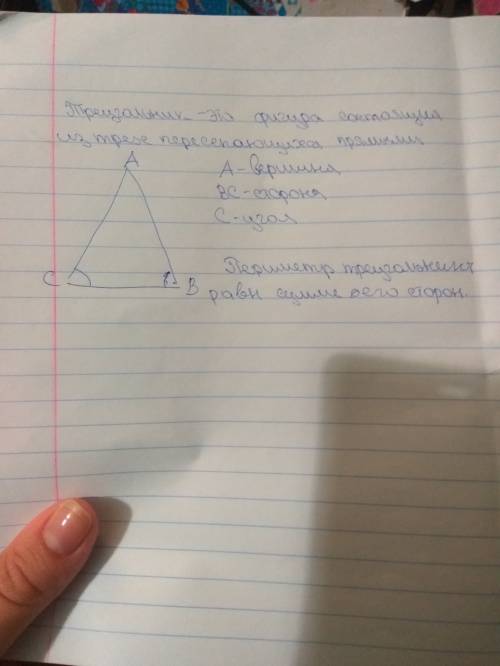 Треугольник - это фигура состоящия
из трех пересекающихся прямых
A
A-вершина
BC-сторона
C-угол
C
B
Периметр треугольника
равн сумме его сторон.